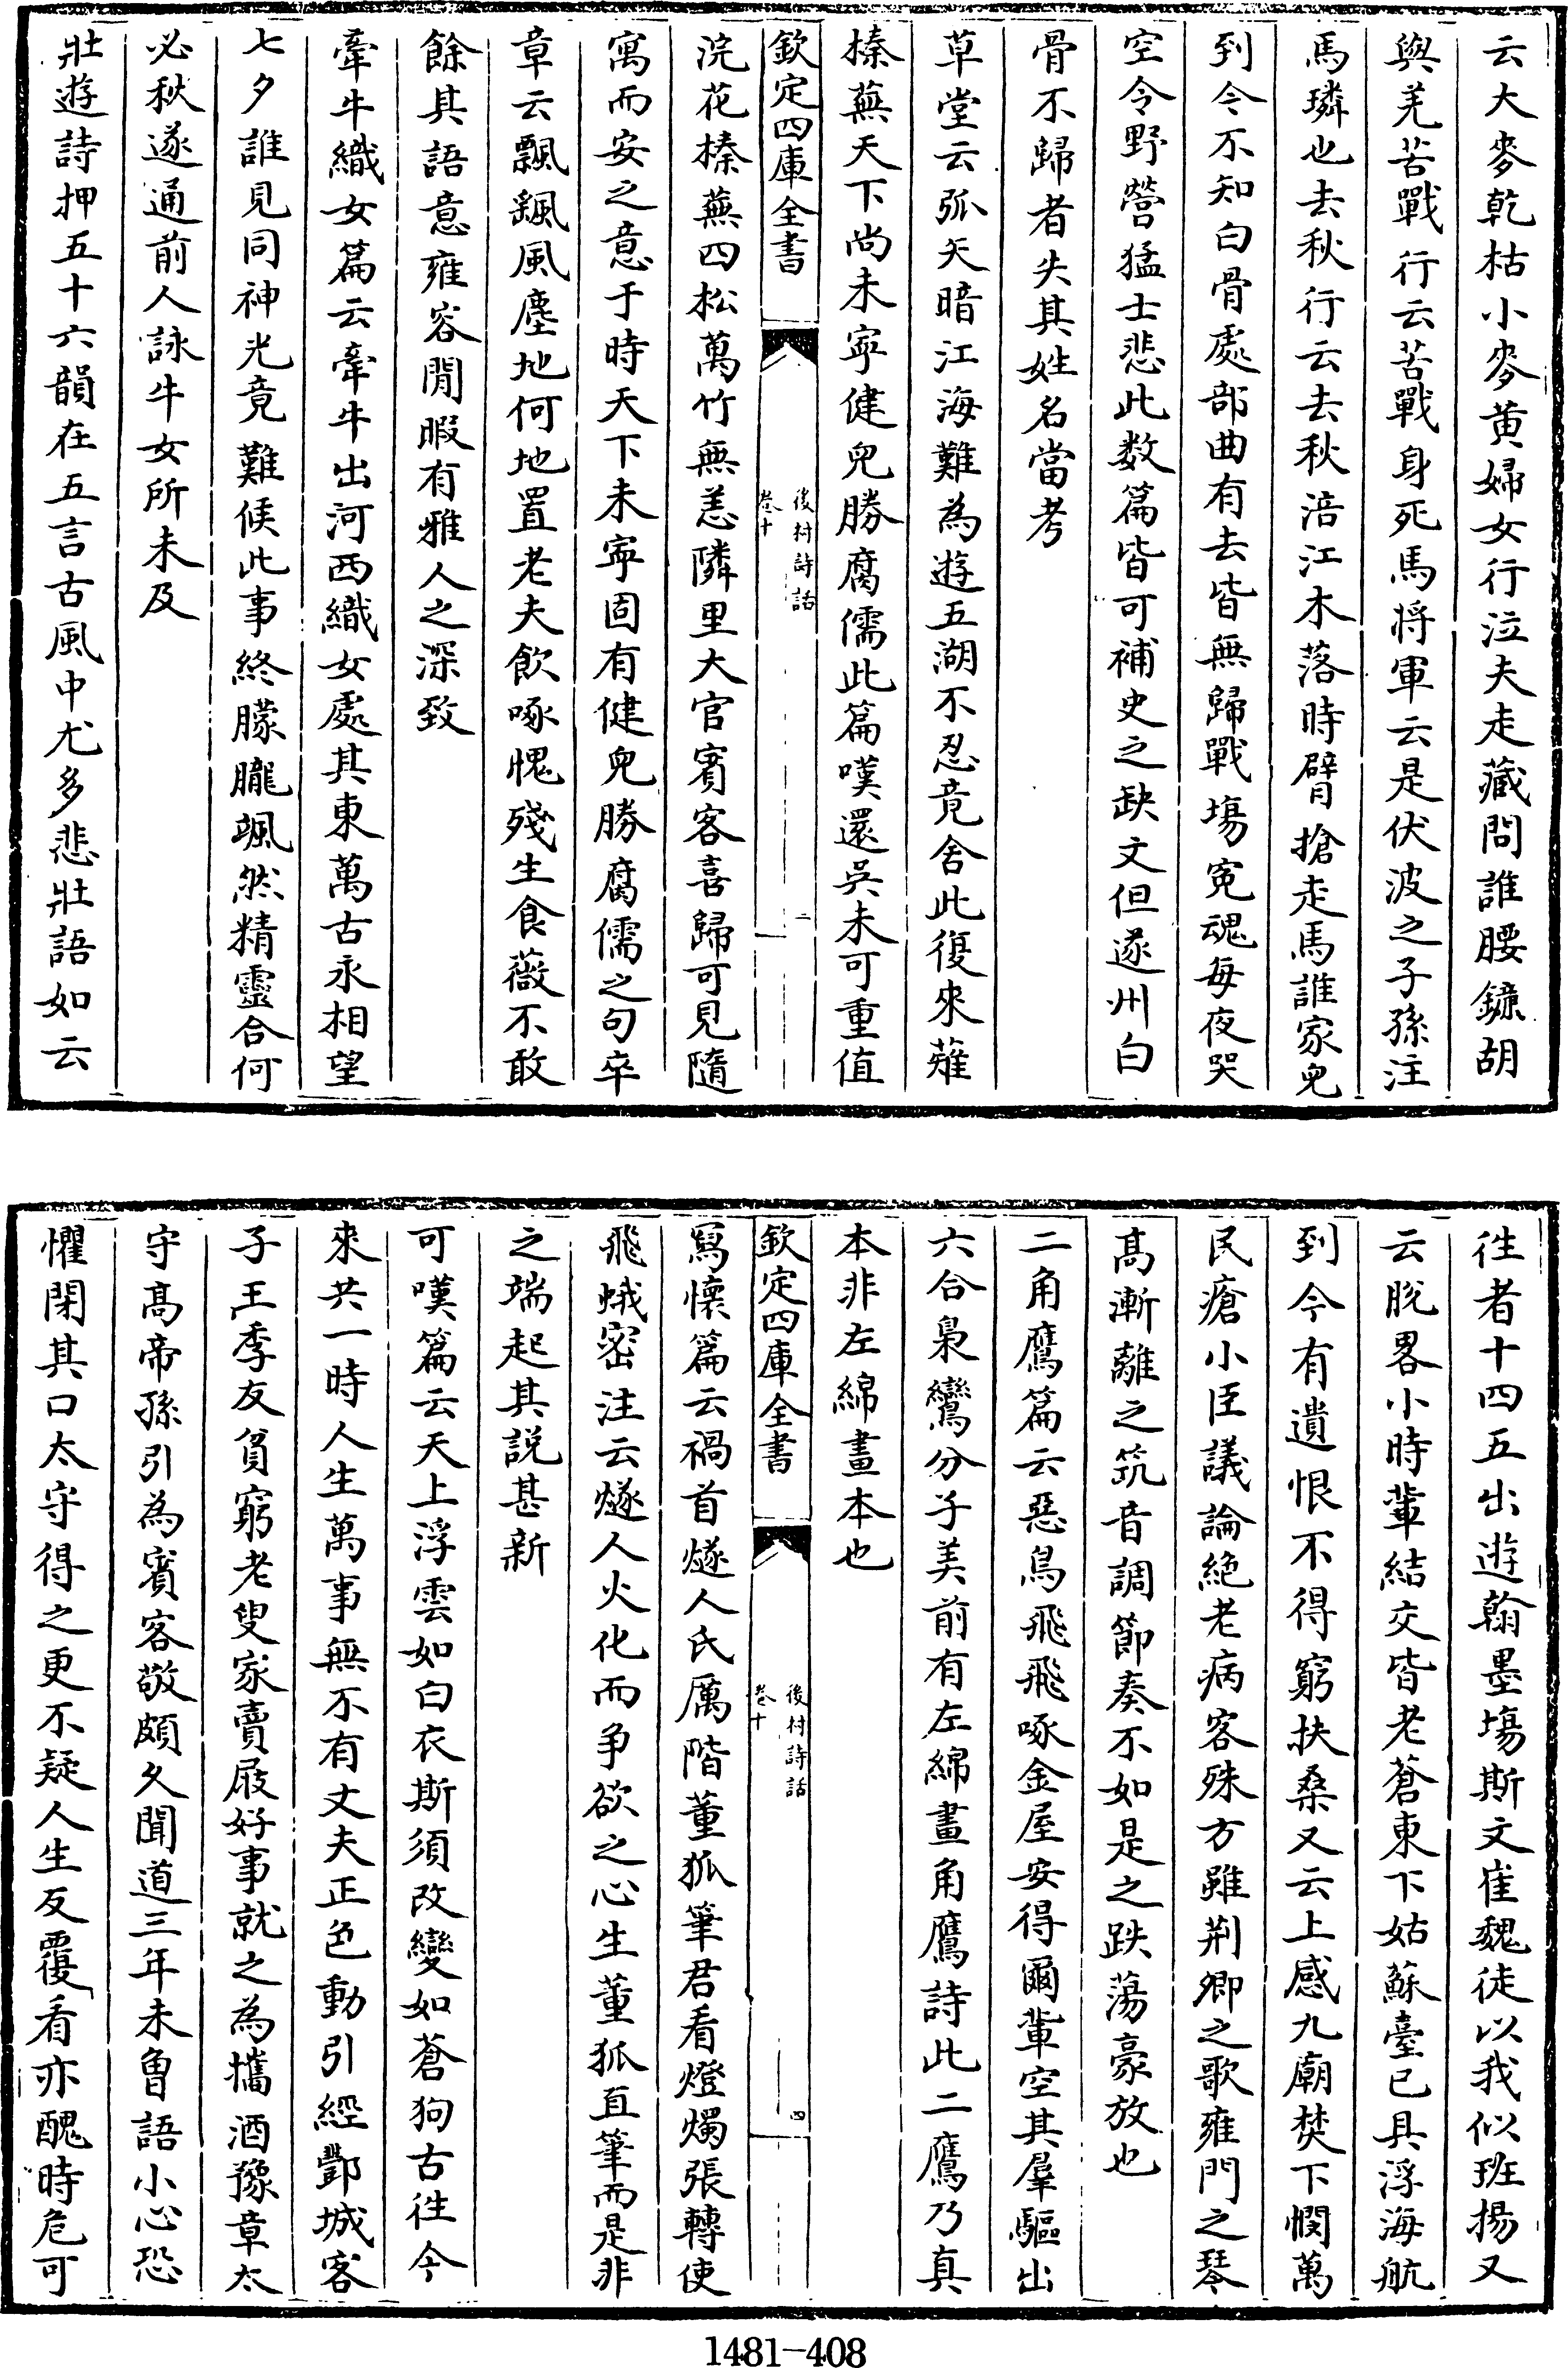 云大麥乾枯小麥黄婦女行泣夫走藏問誰腰鐮胡
與羌苦戰行云苦戰身死馬將軍云是伏波之子孫注
馬璘也去秋行云去秋涪江木落時臂搶走馬誰家兒
到今不知白骨處部曲有去皆無歸戰塲寃魂每夜哭
空令野營猛士悲此数篇皆可補史之缺文但遂州白
骨不歸者失其姓名當考
草堂云弧矢暗江海難為遊五湖不忍竟舍此復來薙
榛蕪天下尚未寧健兒勝腐儒此篇嘆還吳未可重值
欽定四庫全書
後村詩話
卷十
二
浣花榛蕪四松萬竹無恙隣里大官賓客喜歸可見隨
寓而安之意于時天下未寧固有健兒勝腐儒之句卒
章云飄颻風塵地何地置老夫飲啄愧殘生食薇不敢
餘其語意雍容閒暇有雅人之深致
牽牛織女篇云牽牛出河西織女處其東萬古永相望
七夕誰見同神光竟難候此事終朦朧颯然精靈合何
必秋遂通前人詠牛女所未及
壯遊詩押五十六韻在五言古風中尤多悲壯語如云
徃者十四五出遊翰墨塲斯文崔魏徒以我似班揚又
云脫畧小時輩結交皆老蒼東下姑蘇臺已具浮海航
到今有遺恨不得窮扶桑又云上感九廟焚下憫萬
民瘡小臣議論絶老病客殊方雖荆卿之歌雍門之琴
高漸離之筑音調節奏不如是之跌蕩豪放也
二角鷹篇云惡鳥飛飛啄金屋安得爾輩空其羣驅出
六合梟鸞分子美前有左綿畫角鷹詩此二鷹乃真
本非左綿畫本也
欽定四庫全書
後村詩話
卷十
四
寫懷篇云禍首燧人氏厲階董狐筆君看燈燭張轉使
飛蛾密注云燧人火化而争欲之心生董狐直筆而是非
之端起其説甚新
可嘆篇云天上浮雲如白衣斯須改變如蒼狗古徃今
來共一時人生萬事無不有丈夫正色動引經酆城客
子王季友貧窮老叟家賣屐好事就之為攜酒豫章太
守高帝孫引為賓客敬頗久聞道三年未曾語小心恐
懼閉其口太守得之更不疑人生反覆看亦醜時危可
1481-408